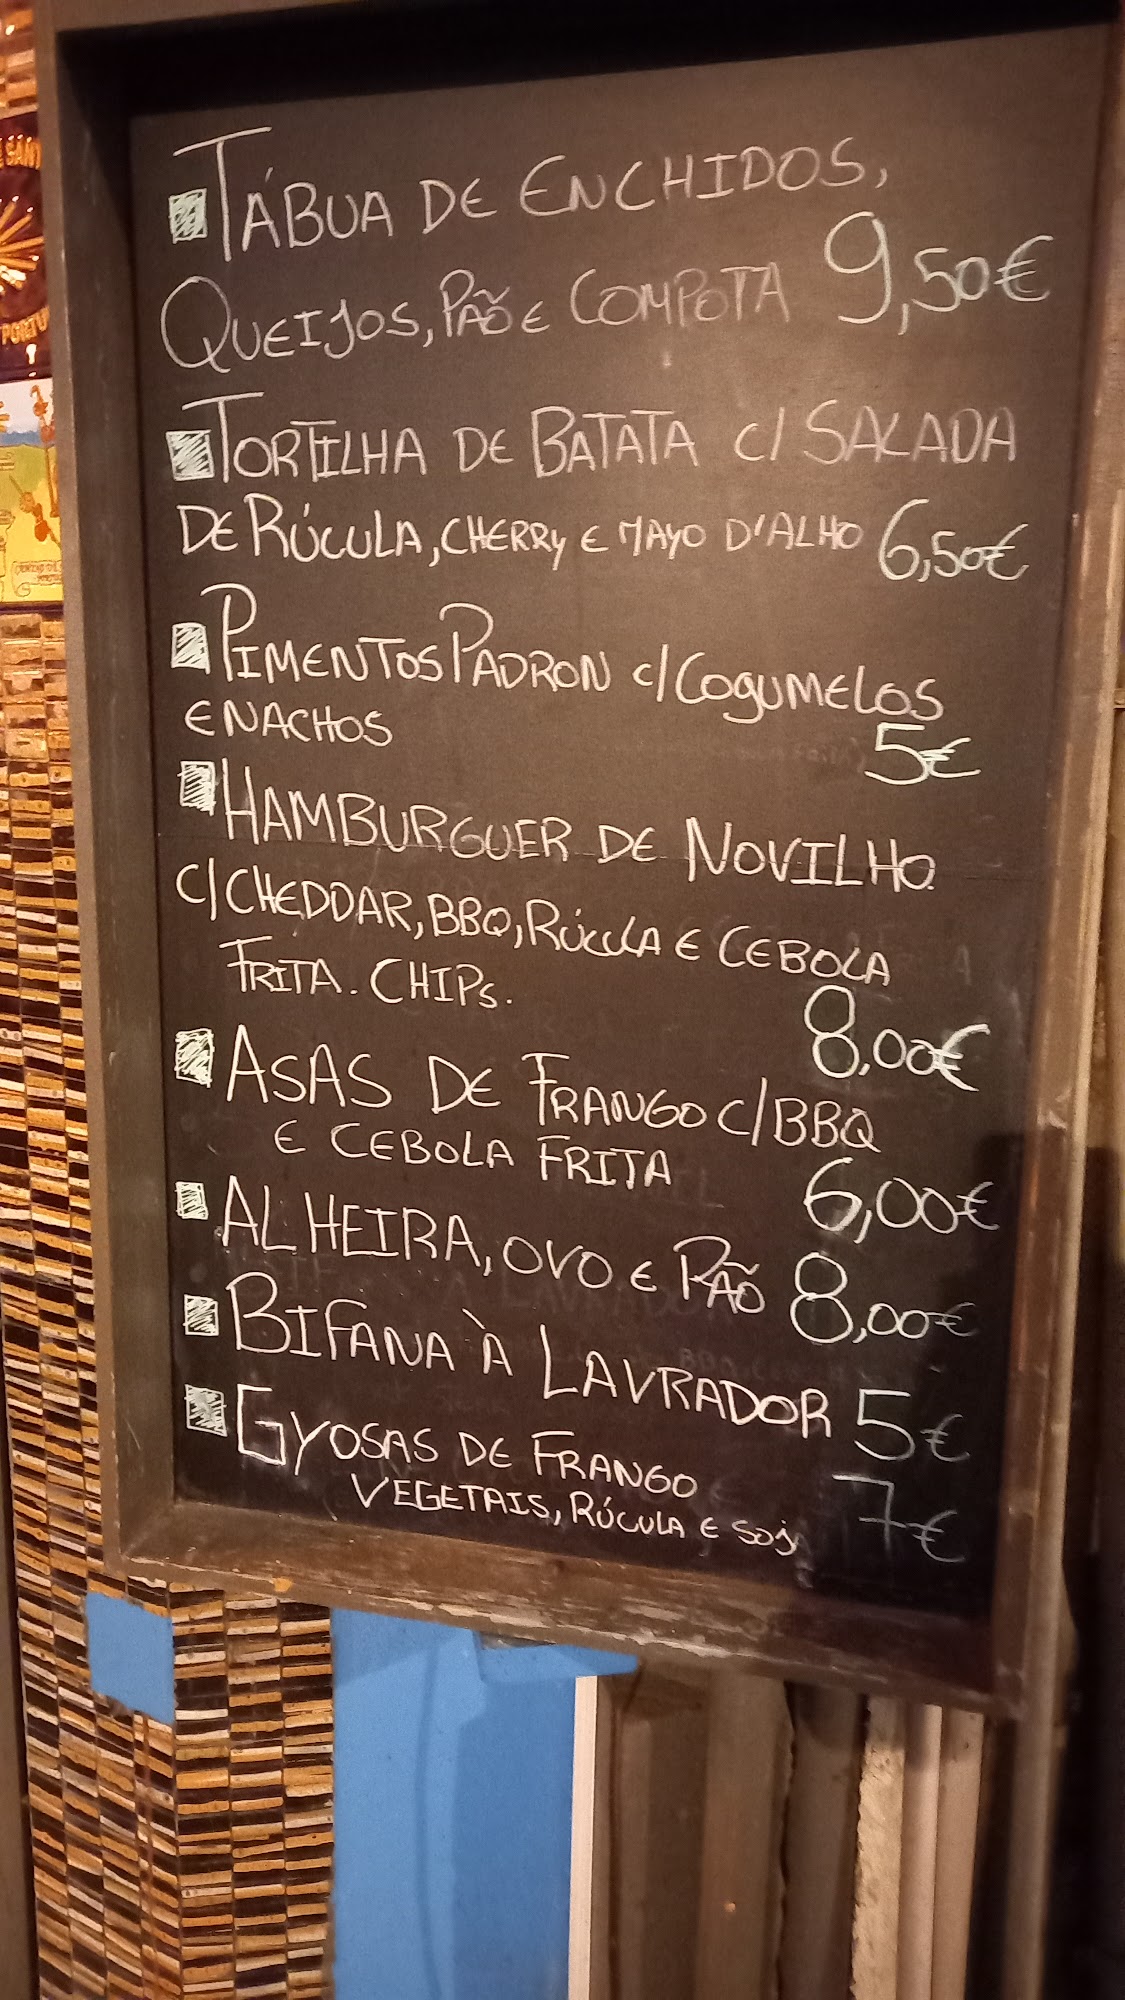 TÁBUA DE ENCHIDOS,
QUEIJOS, PÃO E COMPOTA 9,50€
TORTILHA DE BATATA C/ SALADA
DE RÚCULA, CHERRY E MAYO D'ALHO 6,50€
PIMENTOS PADRON C/ COGUMELOS
E NACHOS
5€
HAMBURGUER DE NOVILHO
C/ CHEDDAR, BBQ, RÚCULA E CEBOLA
FRITA. CHIPS.
8,00€
ASAS DE FRANGO C/ BBQ
E CEBOLA FRITA 6,00€
ALHEIRA, OVO E PÃO 8,00€
BIFANA À LAVRADOR 5€
GYOSAS DE FRANGO
VEGETAIS, RÚCULA E SOJA 7€
PORTU